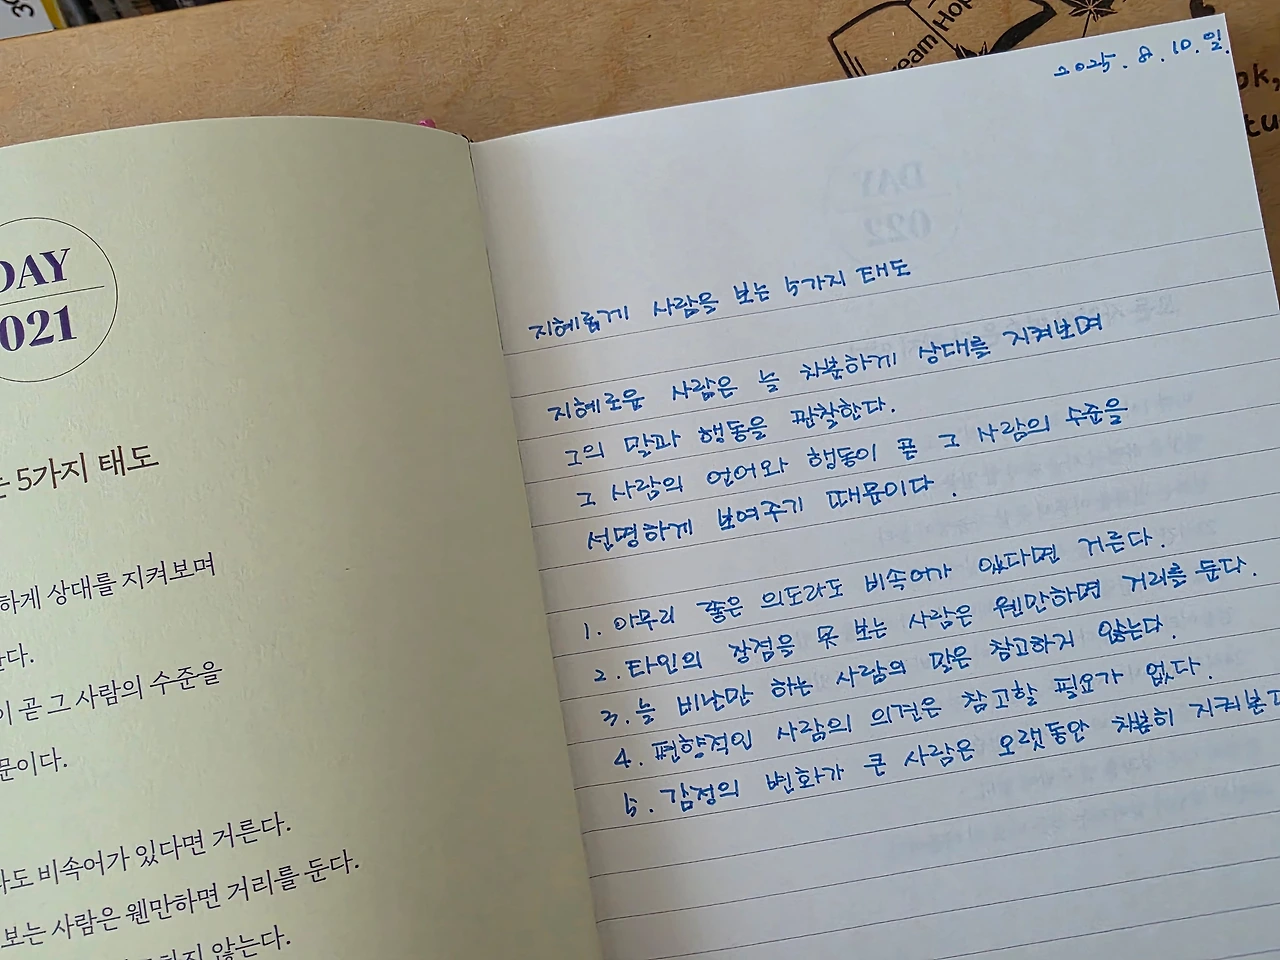 DAY
021
는 5가지 태도
하게 상대를 지켜보며
한다.
이 곧 그 사람의 수준을
문이다.
라도 비속어가 있다면 거른다.
보는 사람은 웬만하면 거리를 둔다.
하지 않는다.
2025. 8. 10. 일.
지혜롭게 사람을 보는 5가지 태도
지혜로운 사람은 늘 차분하게 상대를 지켜보며
그의 말과 행동을 관찰한다.
그 사람의 언어와 행동이 곧 그 사람의 수준을
선명하게 보여주기 때문이다.
1. 아무리 좋은 의도라도 비속어가 있다면 거른다.
2. 타인의 장점을 못 보는 사람은 웬만하면 거리를 둔다.
3. 늘 비난만 하는 사람의 말은 참고하지 않는다.
4. 편향적인 사람의 의견은 참고할 필요가 없다.
5. 감정의 변화가 큰 사람은 오랫동안 차분히 지켜본다
DAY
022
ream
Hop
ok,
tu
39